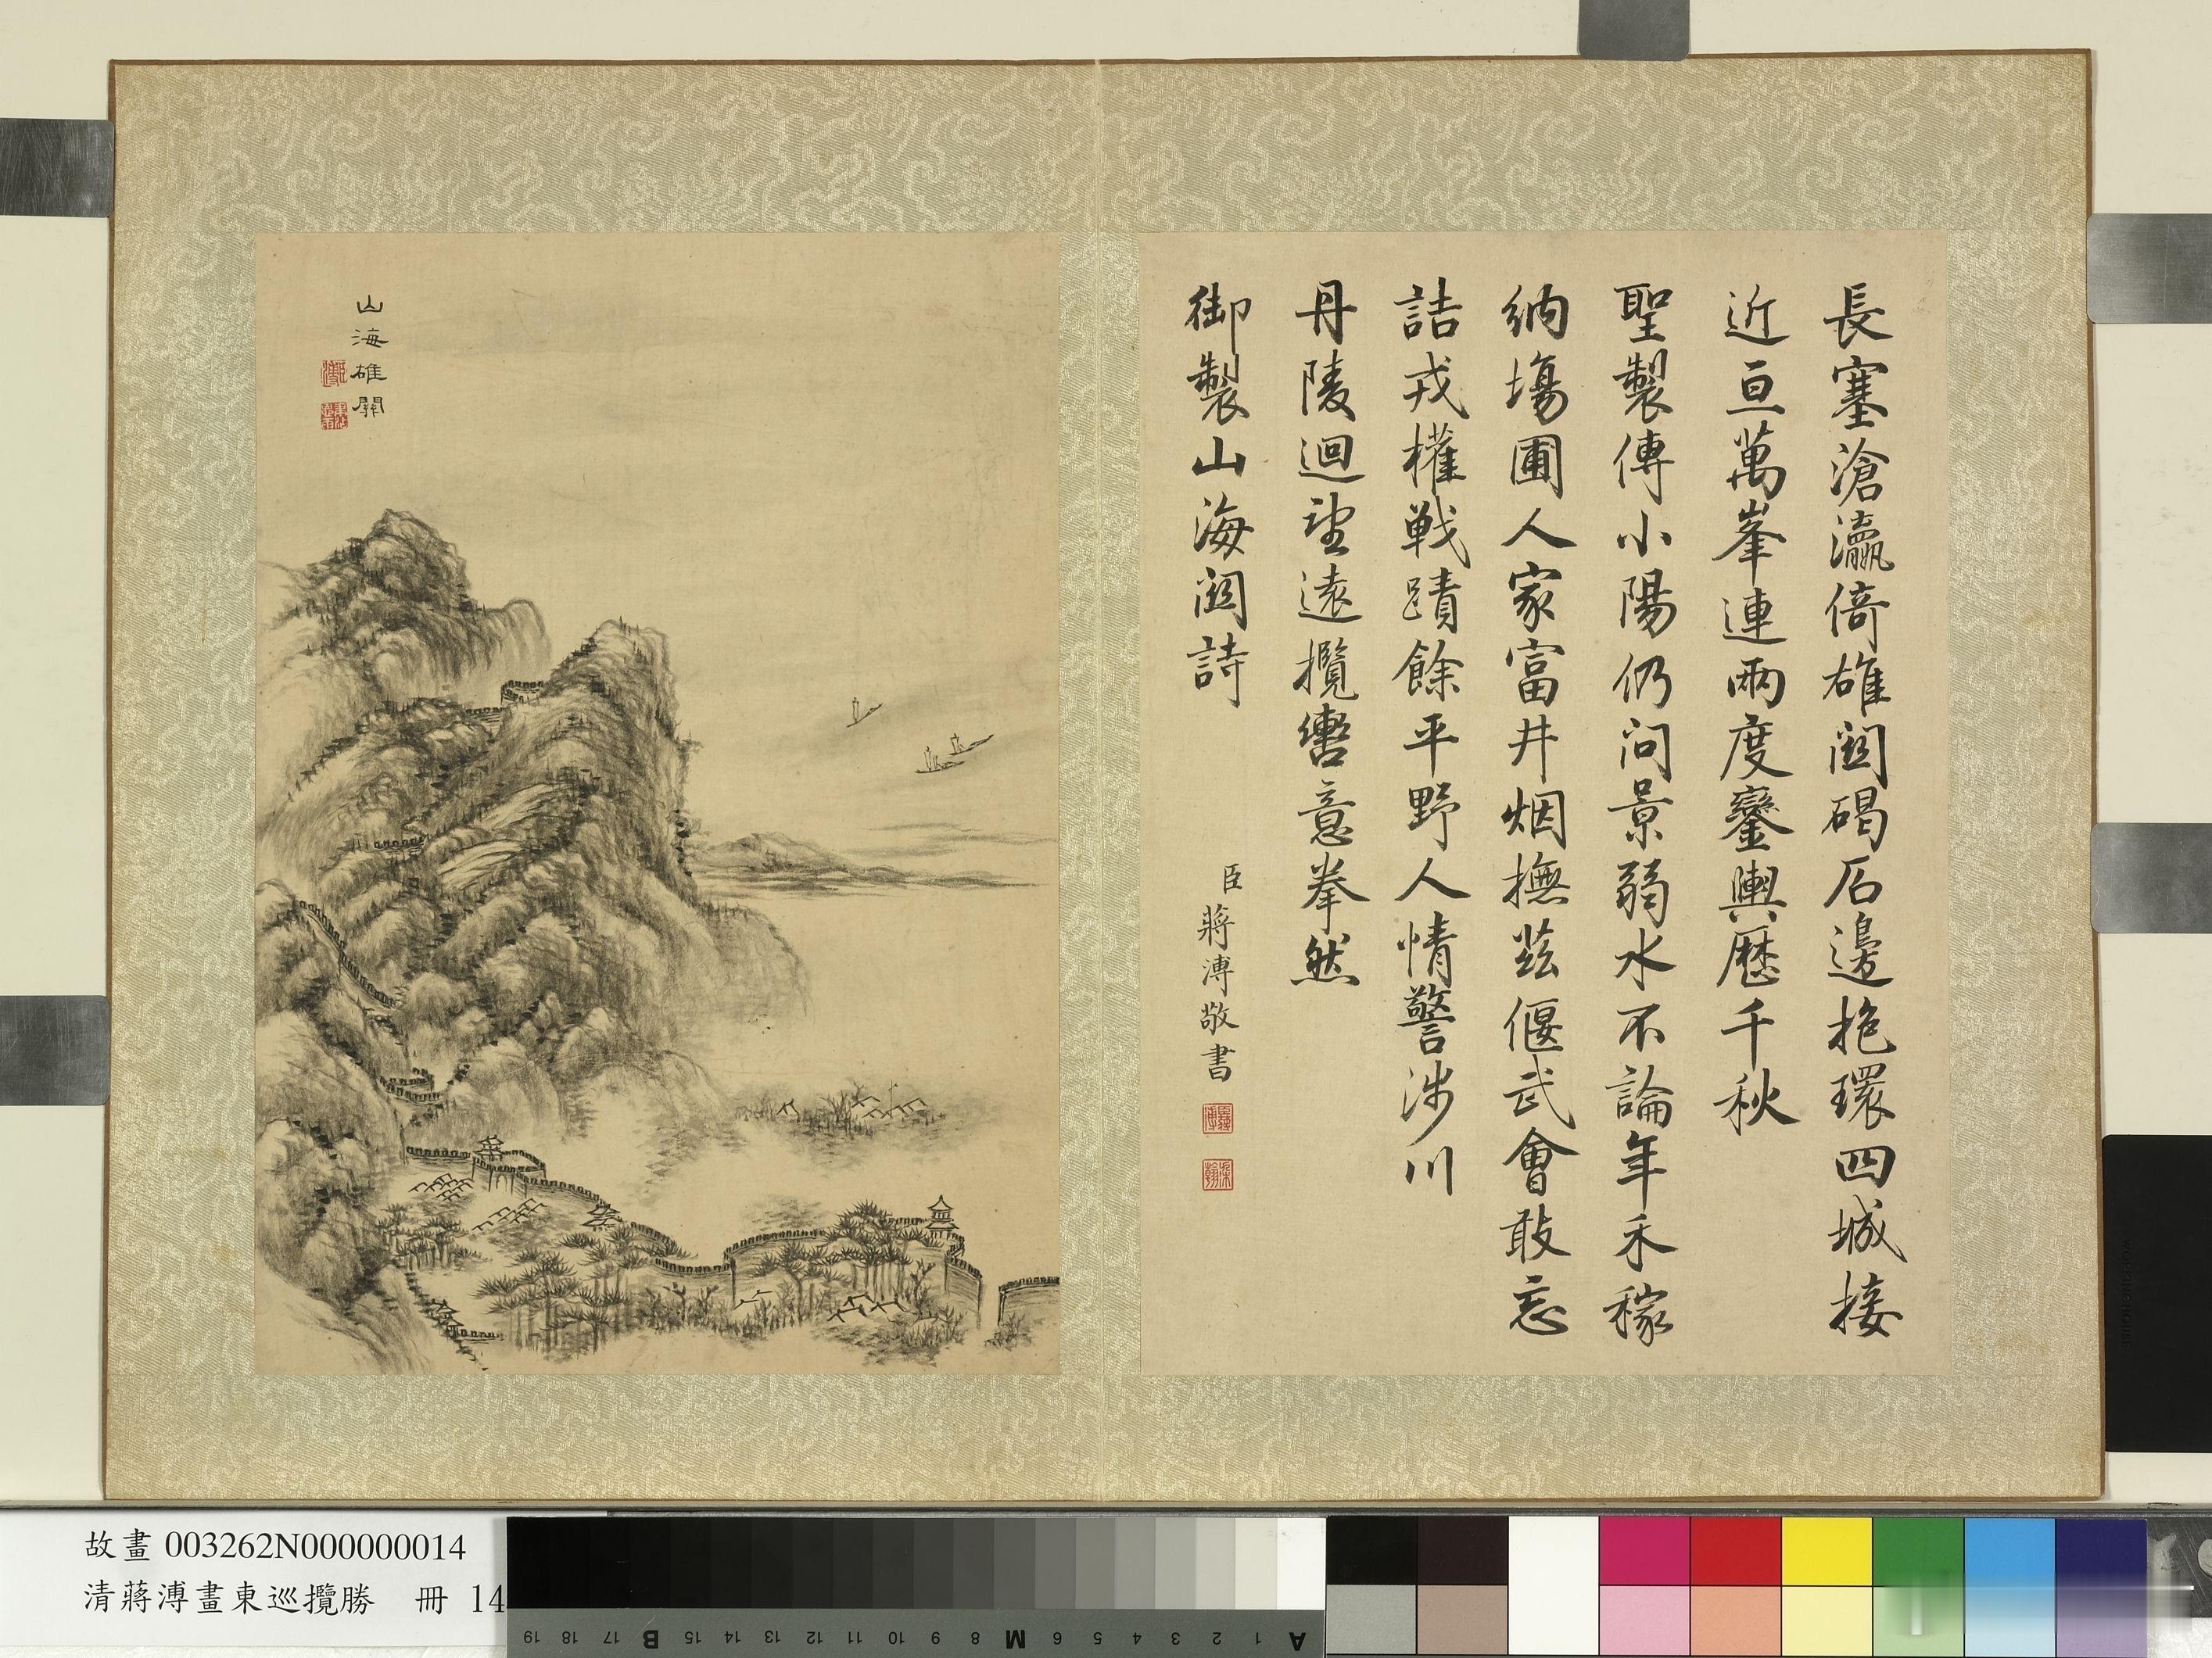 長塞滄瀛倚雄關碣石邊抱環四城接
近亘萬峯連兩度鑾輿歷千秋
聖製傳小陽仍问景弱水不論年禾稼
納場圃人家富井烟撫茲偃武會敢忘
詰戎權戰蹟餘平野人情警涉川
丹陵迴望遠攬轡意拳然
御製山海關詩
臣蔣溥敬書
山海雄關
故畫 003262N000000014
清蔣溥畫東巡攬勝 冊 14
A 1 2 3 4 5 6 M 8 9 10 11 12 13 14 15 B 17 18 19